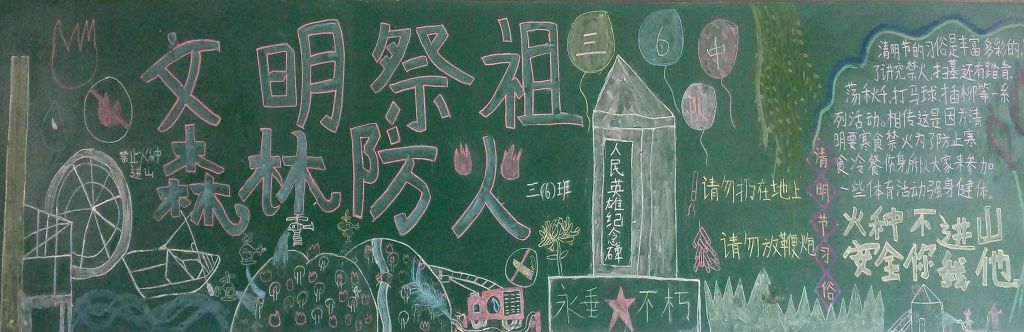 文明祭祖
森林防火
三6中
禁止火种
进山
三(6)班
人民英雄纪念碑
永垂★不朽
请勿扔在地上
请勿放鞭炮
清明节习俗
清明节的习俗是丰富多彩的,
了讲究禁火,扫墓,还有踏青、
荡秋千、打马球、插柳等一系
列活动。相传这是因为清
明要寒食禁火,为了防止寒
食冷餐伤身,所以大家来参加
一些体育活动强身健体。
火种不进山
安全你我他